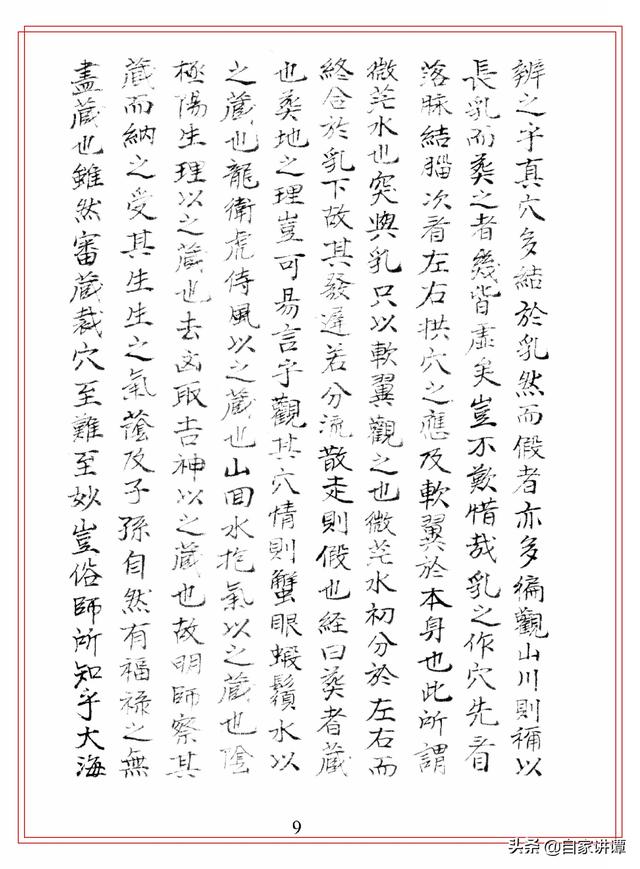 辨之乎真穴多結於乳然而假者亦多徧觀山川則稱以
長乳而葬之者幾皆虛矣豈不歎惜哉乳之作穴先看
落脉結腦次看左右拱穴之應及軟翼於本身也此所謂
微茫水也突與乳只以軟翼觀之也微茫水初分於左右而
終合於乳下故其發遲若分流散走則假也経曰葬者藏
也葬地之理豈可易言乎觀其穴情則蟹眼蝦鬚水以
之藏也龍衛虎侍風以之藏也山回水抱氣以之藏也陰
極陽生理以之藏也去凶取吉神以之藏也故明師察其
藏而納之受其生生之氣蔭及子孫自然有福祿之無
盡藏也雖然審藏裁穴至難至妙豈俗師所知乎大海
9
头条 @自家讲谭